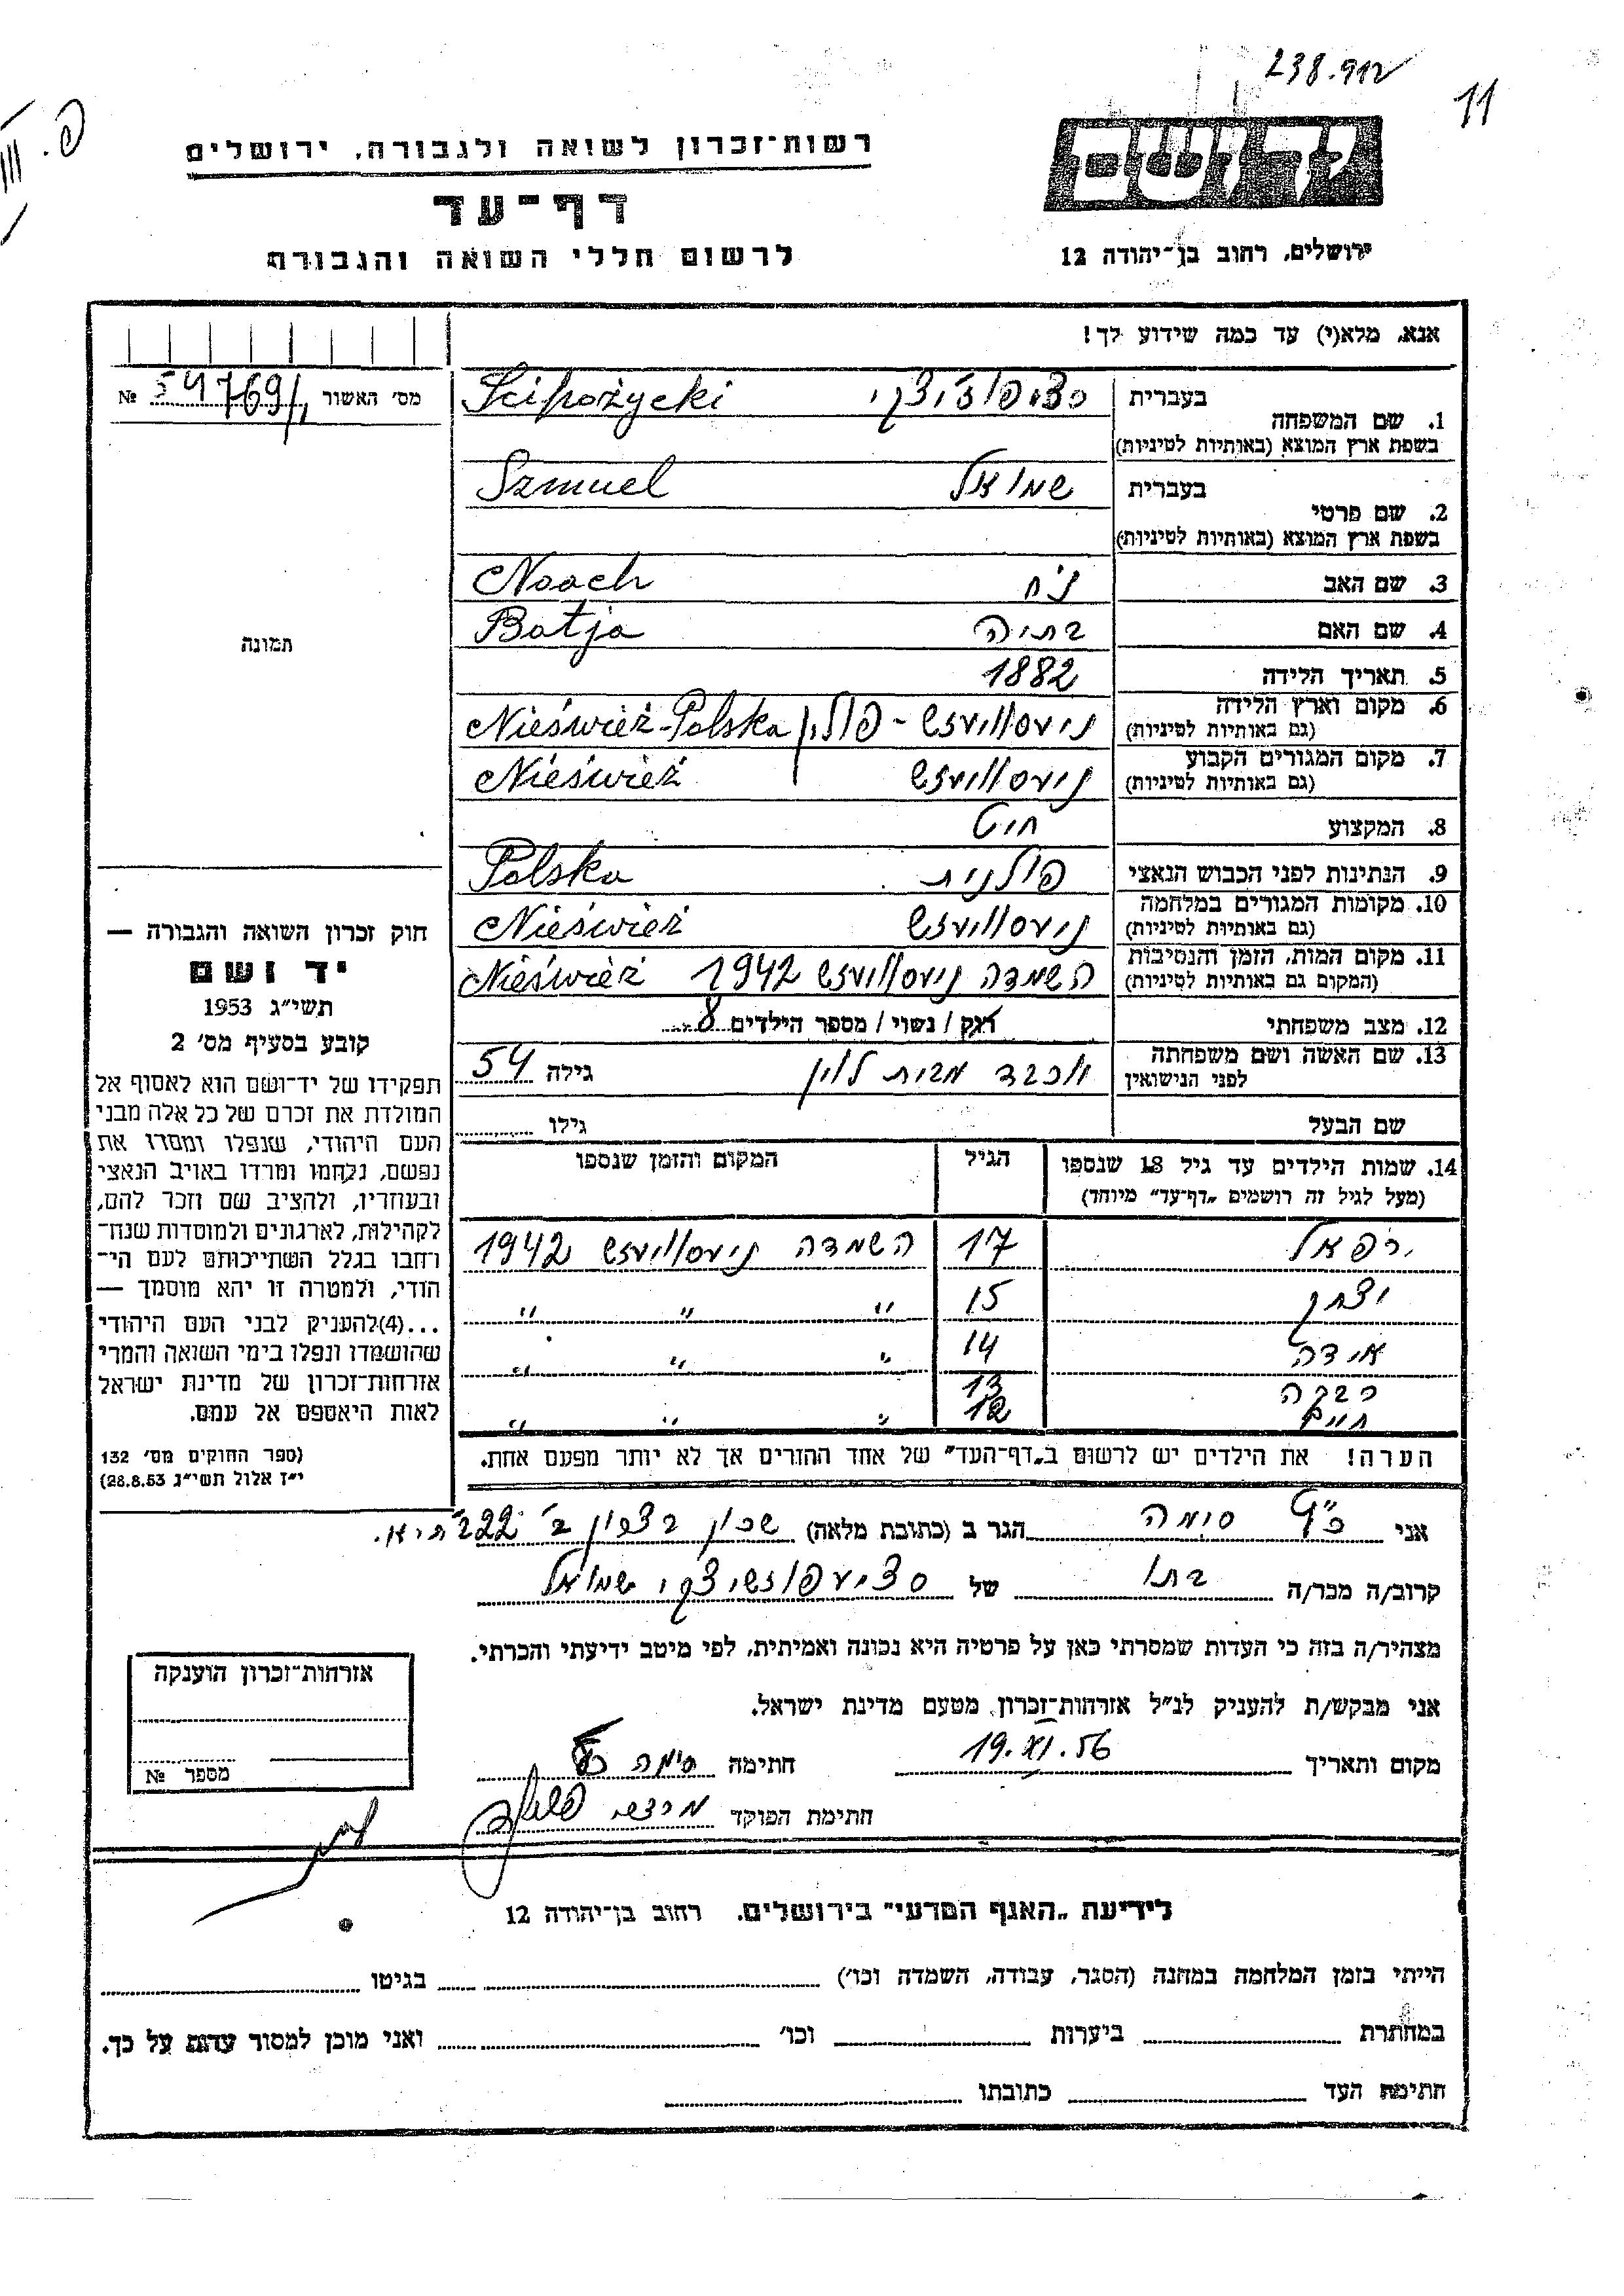 238.912
11
פ. III
רשות־זכרון לשואה ולגבורה, ירושלים
דף־עד
לרשום חללי השואה והגבורה
יד ושם
ירושלים, רחוב בן־יהודה 12
אנא, מלא(י) עד כמה שידוע לך!
מס' האשור 54769/ №
תמונה
1. שם המשפחה
בעברית סציפוז'יצקי
בשפת ארץ המוצא (באותיות לטיניות) Scipożycki
2. שם פרטי
בעברית שמואל
בשפת ארץ המוצא (באותיות לטיניות) Szmuel
3. שם האב נח Noach
4. שם האם בתיה Batja
5. תאריך הלידה 1882
6. מקום וארץ הלידה (גם באותיות לטיניות) ניעסוויעזש - פולין Nieświeź-Polska
7. מקום המגורים הקבוע (גם באותיות לטיניות) ניעסוויעזש Nieświeź
8. המקצוע חיט
9. הנתינות לפני הכבוש הנאצי פולנית Polska
10. מקומות המגורים במלחמה (גם באותיות לטיניות) ניעסוויעזש Nieświeź
11. מקום המות, הזמן והנסיבות (המקום גם באותיות לטיניות) השמדה ניעסוויעזש 1942 Nieświeź
12. מצב משפחתי רוק / נשוי / מספר הילדים 8
13. שם האשה ושם משפחתה לפני הנישואין יוכבד מבית לוין גילה 54
שם הבעל גילו
14. שמות הילדים עד גיל 18 שנספו הגיל המקום והזמן שנספו
(מעל לגיל זה רושמים „דף־עד" מיוחד)
רפאל 17 השמדה ניעסוויעזש 1942
יצחק 15 " " "
אידה 14 " " "
רבקה 13
חיים 12 " " "
הערה! את הילדים יש לרשום ב„דף־העד" של אחד ההורים אך לא יותר מפעם אחת.
חוק זכרון השואה והגבורה —
יד ושם
תשי"ג 1953
קובע בסעיף מס' 2
תפקידו של יד־ושם הוא לאסוף אל
המולדת את זכרם של כל אלה מבני
העם היהודי, שנפלו ומסרו את
נפשם, נלחמו ומרדו באויב הנאצי
ובעוזריו, ולהציב שם וזכר להם,
לקהילות, לארגונים ולמוסדות שנח־
רבו בגלל השתייכותם לעם הי־
הודי, ולמטרה זו יהא מוסמך —
...(4)להעניק לבני העם היהודי
שהושמדו ונפלו בימי השואה והמרי
אזרחות־זכרון של מדינת ישראל
לאות היאספם אל עמם.
(ספר החוקים מס' 132
י"ז אלול תשי"ג 28.8.53)
אני כ"ץ סימה הגר ב (כתובת מלאה) שכון רצפון ב' 222 ת"א.
קרוב/ה מכר/ה בתו של סציעפוזשיצקי שמואל
מצהיר/ה בזה כי העדות שמסרתי כאן על פרטיה היא נכונה ואמיתית, לפי מיטב ידיעתי והכרתי.
אני מבקש/ת להעניק לנ"ל אזרחות־זכרון מטעם מדינת ישראל.
מקום ותאריך 19.XI.56 חתימה סימה כץ
חתימת הפוקד
אזרחות־זכרון הוענקה
מספר №
לידיעת „האגף המדעי" בירושלים. רחוב בן־יהודה 12
הייתי בזמן המלחמה במחנה (הסגר, עבודה, השמדה וכו') בגיטו
במחתרת ביערות וכו' ואני מוכן למסור עדות על כך.
חתימת העד כתובתו